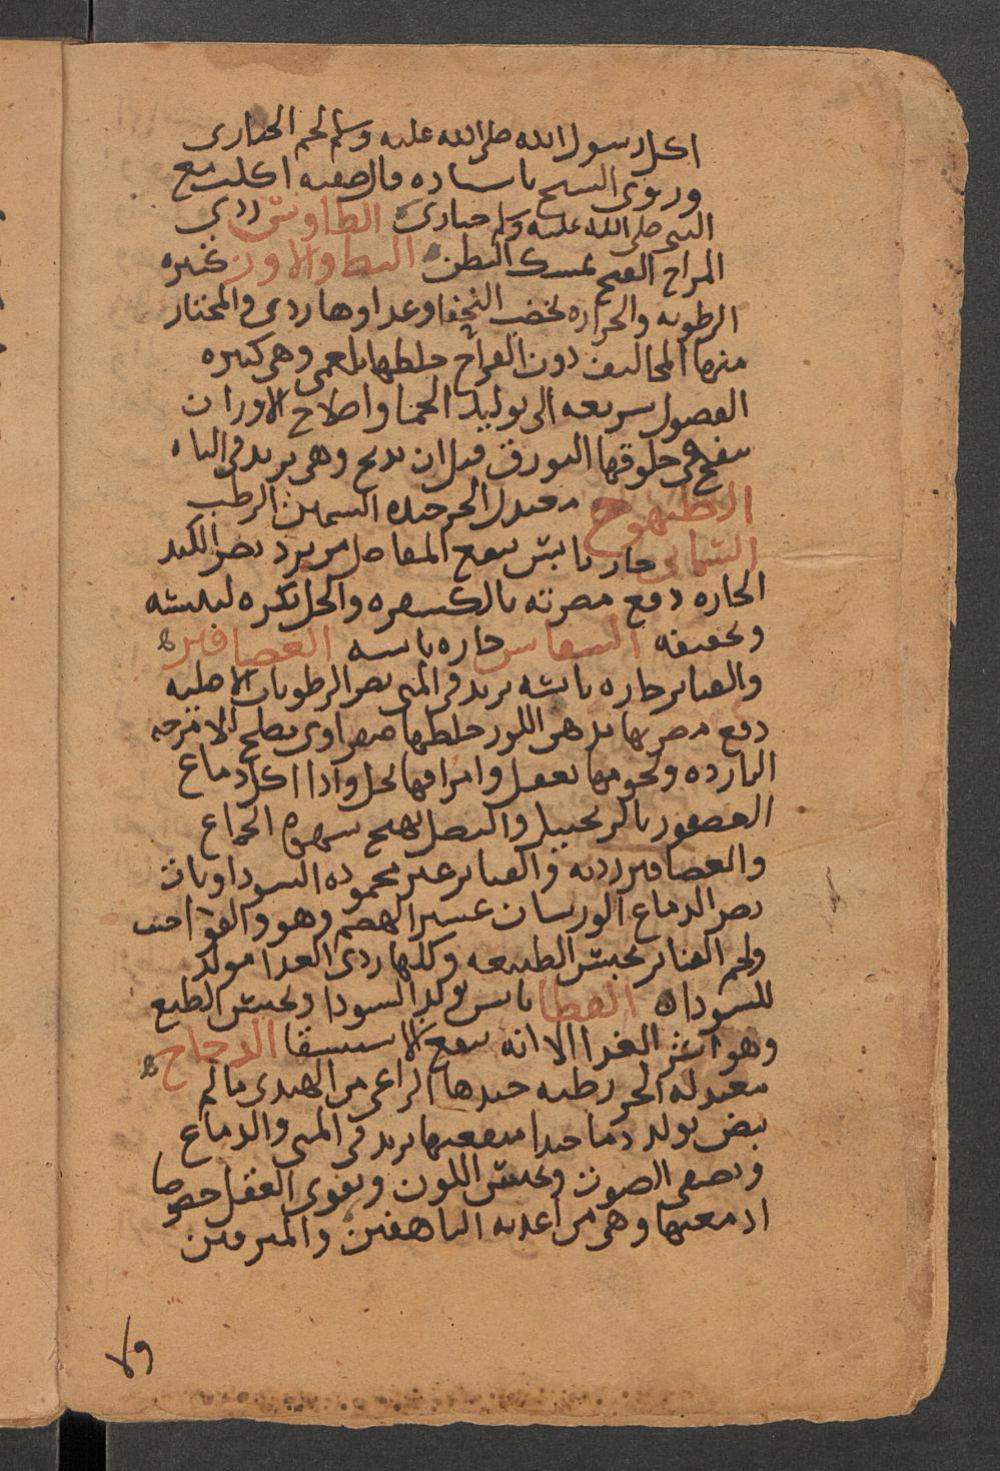 اكل رسول الله صلى الله عليه وسلم لحم الحبارى
وروى الشيخ باسناده قال صفينه اكلت مع
النبي صلى الله عليه وسلم حبارى الطاوس ردي
المزاج الفج يمسك البطن البط والاوز كثيره
الرطوبه والحراره تخصب النحفا وغداوها ردي والمختار
منها المخاليف دون الفراخ خلطها بلغمي وهي كثيره
الفضول سريعه الى توليد الحميا واصلاح الاوز ان
ينفخ في حلوقها البورق قبل ان تذبح وهي تزيد في الباه
الطيهوج معتدل الحر جيده السمين الرطب
السماني حار يابس ينفع المفاصل من برد يضر الكبد
الحاره دفع مضرته بالكسفره والخل تكره ليبسه
وتجفيفه حاره يابسه العصافير
والقنابر حاره يابسه تزيد في المني تضر الرطوبات الاصليه
دفع مضرتها بدهن اللوز خلطها صفراوي تصلح للامزجه
البارده ولحومها تعقل وامراقها تحل واذا اكل دماغ
العصفور بالزنجبيل والبصل يهيج شهوة الجماع
والعصافير رديه والقنابر غير محموده السوداويات
تضر الدماغ الورسان عسير الهضم وهو والفواخت
ولحم القنابر تحبس الطبيعه وكلها ردي الغدا مولد
للسودا القطا يابس يولد السودا ويحبس الطبع
وهو اشر الغدا الا انه ينفع الاستسقا الدجاج
معتدله الحر رطبه جيدها الراعي من الهندي ما لم
تبض تولد دما جيدا منفعتها تزيد في المني والدماغ
وتصفي الصوت وتحسن اللون وتقوي العقل خصوصا
ادمغتها وهي من اغديه الناهقين والمترفين
ولا